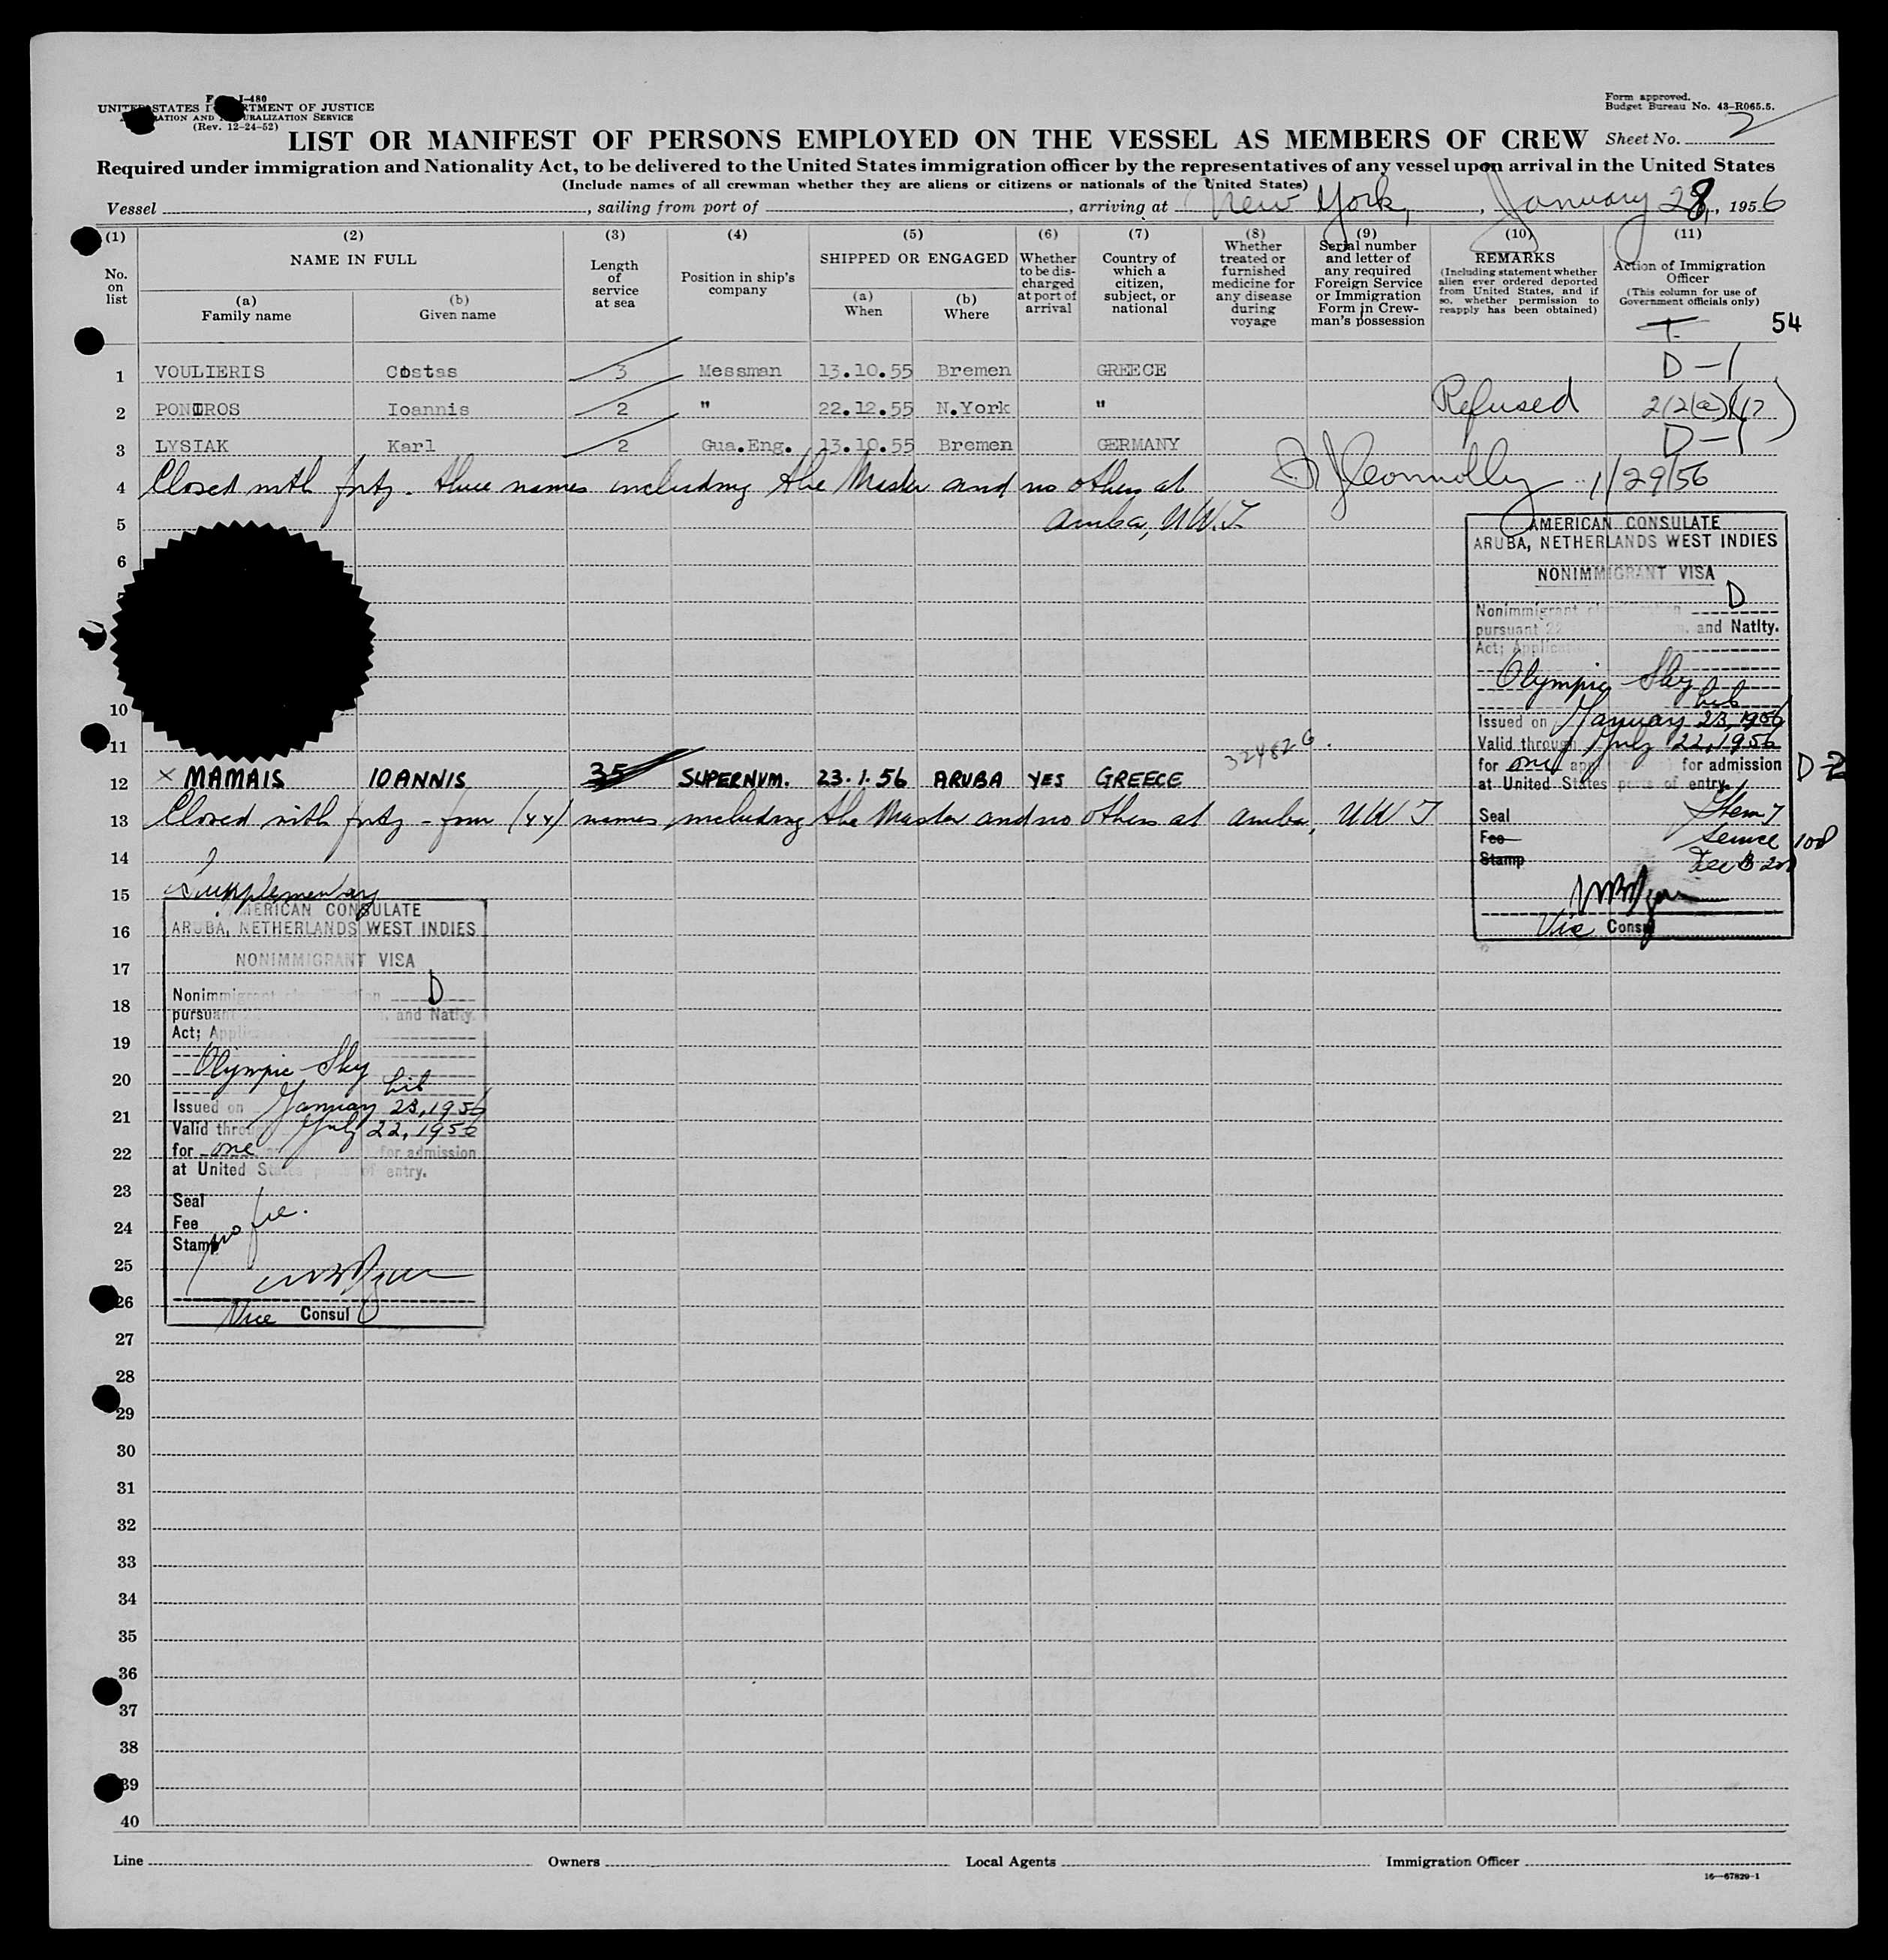 Form I-480
UNITED STATES DEPARTMENT OF JUSTICE
IMMIGRATION AND NATURALIZATION SERVICE
(Rev. 12-24-52)
Form approved.
Budget Bureau No. 43-R065.5.
LIST OR MANIFEST OF PERSONS EMPLOYED ON THE VESSEL AS MEMBERS OF CREW Sheet No. 2
Required under immigration and Nationality Act, to be delivered to the United States immigration officer by the representatives of any vessel upon arrival in the United States
(Include names of all crewman whether they are aliens or citizens or nationals of the United States)
Vessel , sailing from port of , arriving at New York, , January 28, 1956
(1) No. on list
(2) NAME IN FULL
(a) Family name
(b) Given name
(3) Length of service at sea
(4) Position in ship's company
(5) SHIPPED OR ENGAGED
(a) When
(b) Where
(6) Whether to be discharged at port of arrival
(7) Country of which a citizen, subject, or national
(8) Whether treated or furnished medicine for any disease during voyage
(9) Serial number and letter of any required Foreign Service or Immigration Form in Crewman's possession
(10) REMARKS (Including statement whether alien ever ordered deported from United States, and if so, whether permission to reapply has been obtained)
(11) Action of Immigration Officer (This column for use of Government officials only)
54
1 VOULIERIS Costas 3 Messman 13.10.55 Bremen GREECE D-1
2 PONTROS Ioannis 2 " 22.12.55 N.York " Refused
3 LYSIAK Karl 2 Gua.Eng. 13.10.55 Bremen GERMANY D-1
4 Closed with forty-three names including the Master and no others at 1/29/56
5 Aruba, N.W.I.
6
10
11 324826
12 x MAMAIS IOANNIS 35 SUPERNUM. 23.1.56 ARUBA YES GREECE D-2
13 Closed with forty-four (44) names including the Master and no others at Aruba, N W I
14
15 Supplementary
16
17
18
19
20
21
22
23
24
25
26
27
28
29
30
31
32
33
34
35
36
37
38
39
40
AMERICAN CONSULATE
ARUBA, NETHERLANDS WEST INDIES
NONIMMIGRANT VISA
Nonimmigrant classification D
pursuant 22 m. and Natlty.
Act; Applica
Olympic Sky
Lib
Issued on January 23, 1956
Valid through July 22, 1956
for one for admission
at United States ports of entry.
Seal
Fee
Stamp
Vice Consul
AMERICAN CONSULATE
ARUBA, NETHERLANDS WEST INDIES
NONIMMIGRANT VISA
Nonimmigrant classification D
pursuant . and Natlty.
Act; Applica
Olympic Sky
Lib
Issued on January 23, 1956
Valid through July 22, 1956
for one for admission
at United States ports of entry.
Seal
Fee no fee.
Stamp
Vice Consul
Line Owners Local Agents Immigration Officer
16—67829-1